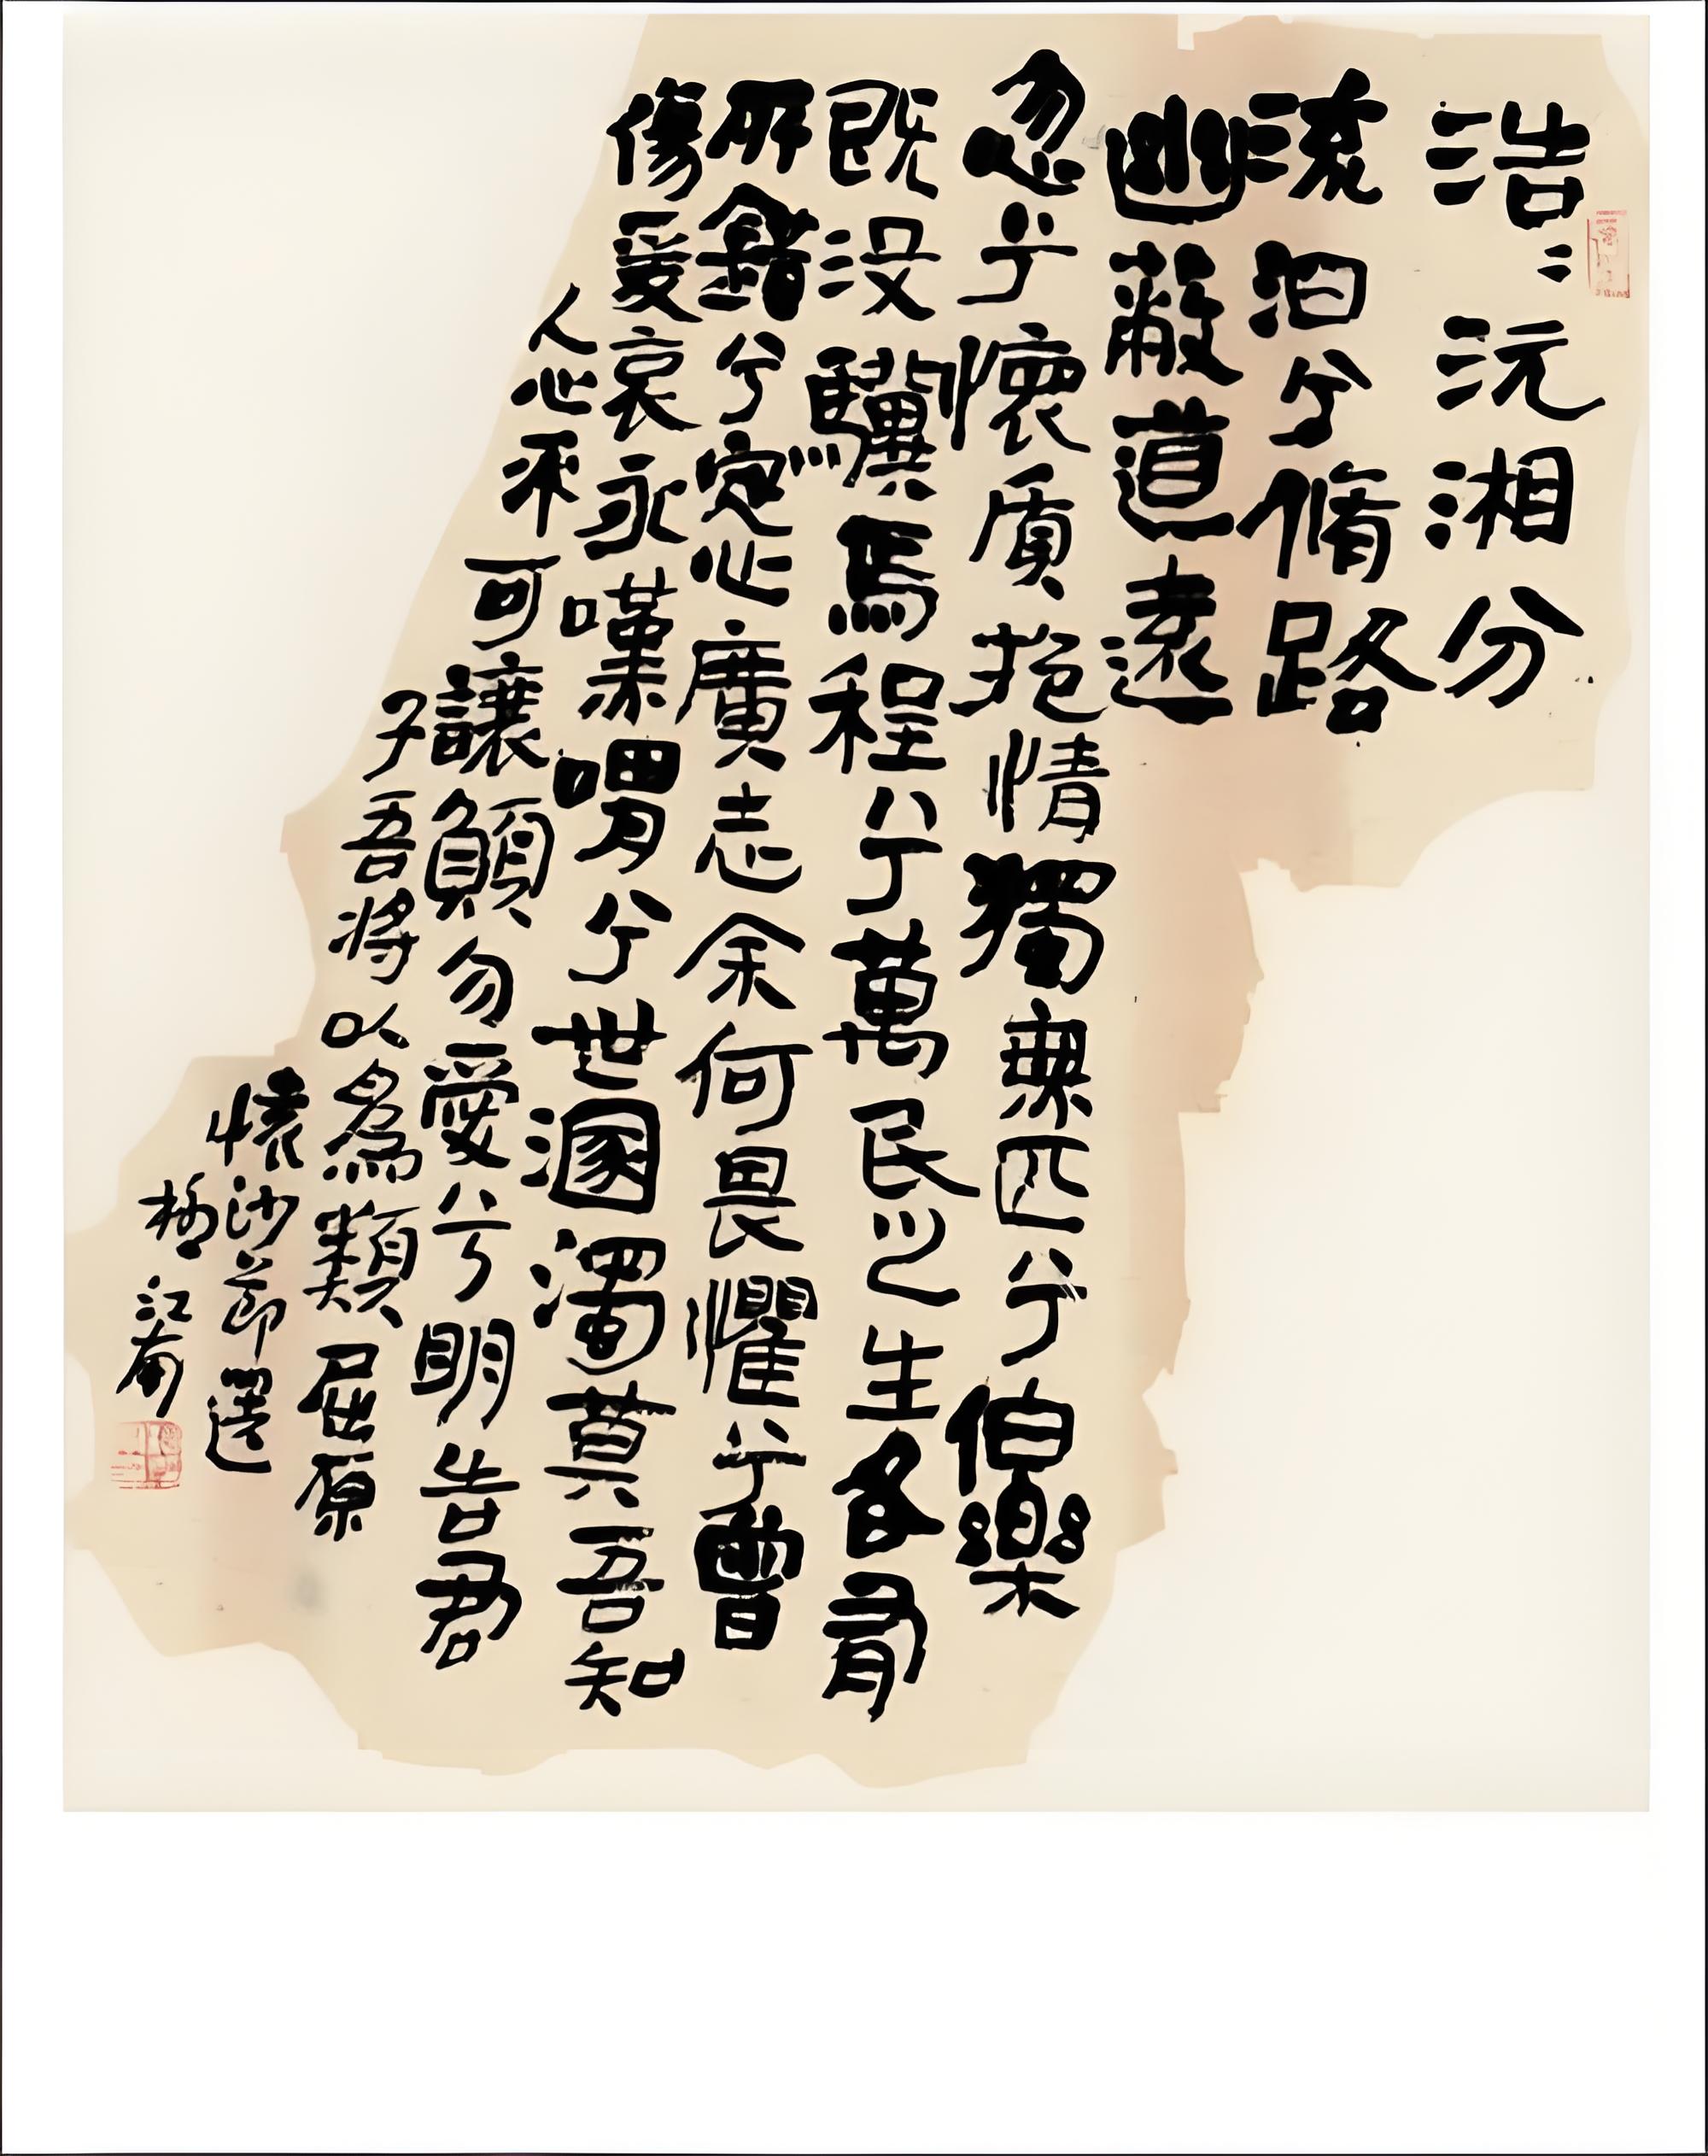 浩〻沅湘分
流汩兮脩路
幽蔽道遠
忽兮懷質抱情獨無匹兮伯樂
既没驥焉程兮萬民之生各有
所錯兮定心廣志余何畏懼兮曾
傷爰哀永嘆喟兮世溷濁莫吾知
人心不可讓願勿愛兮明告君
子吾將以為類屈原
懷沙節選
江南